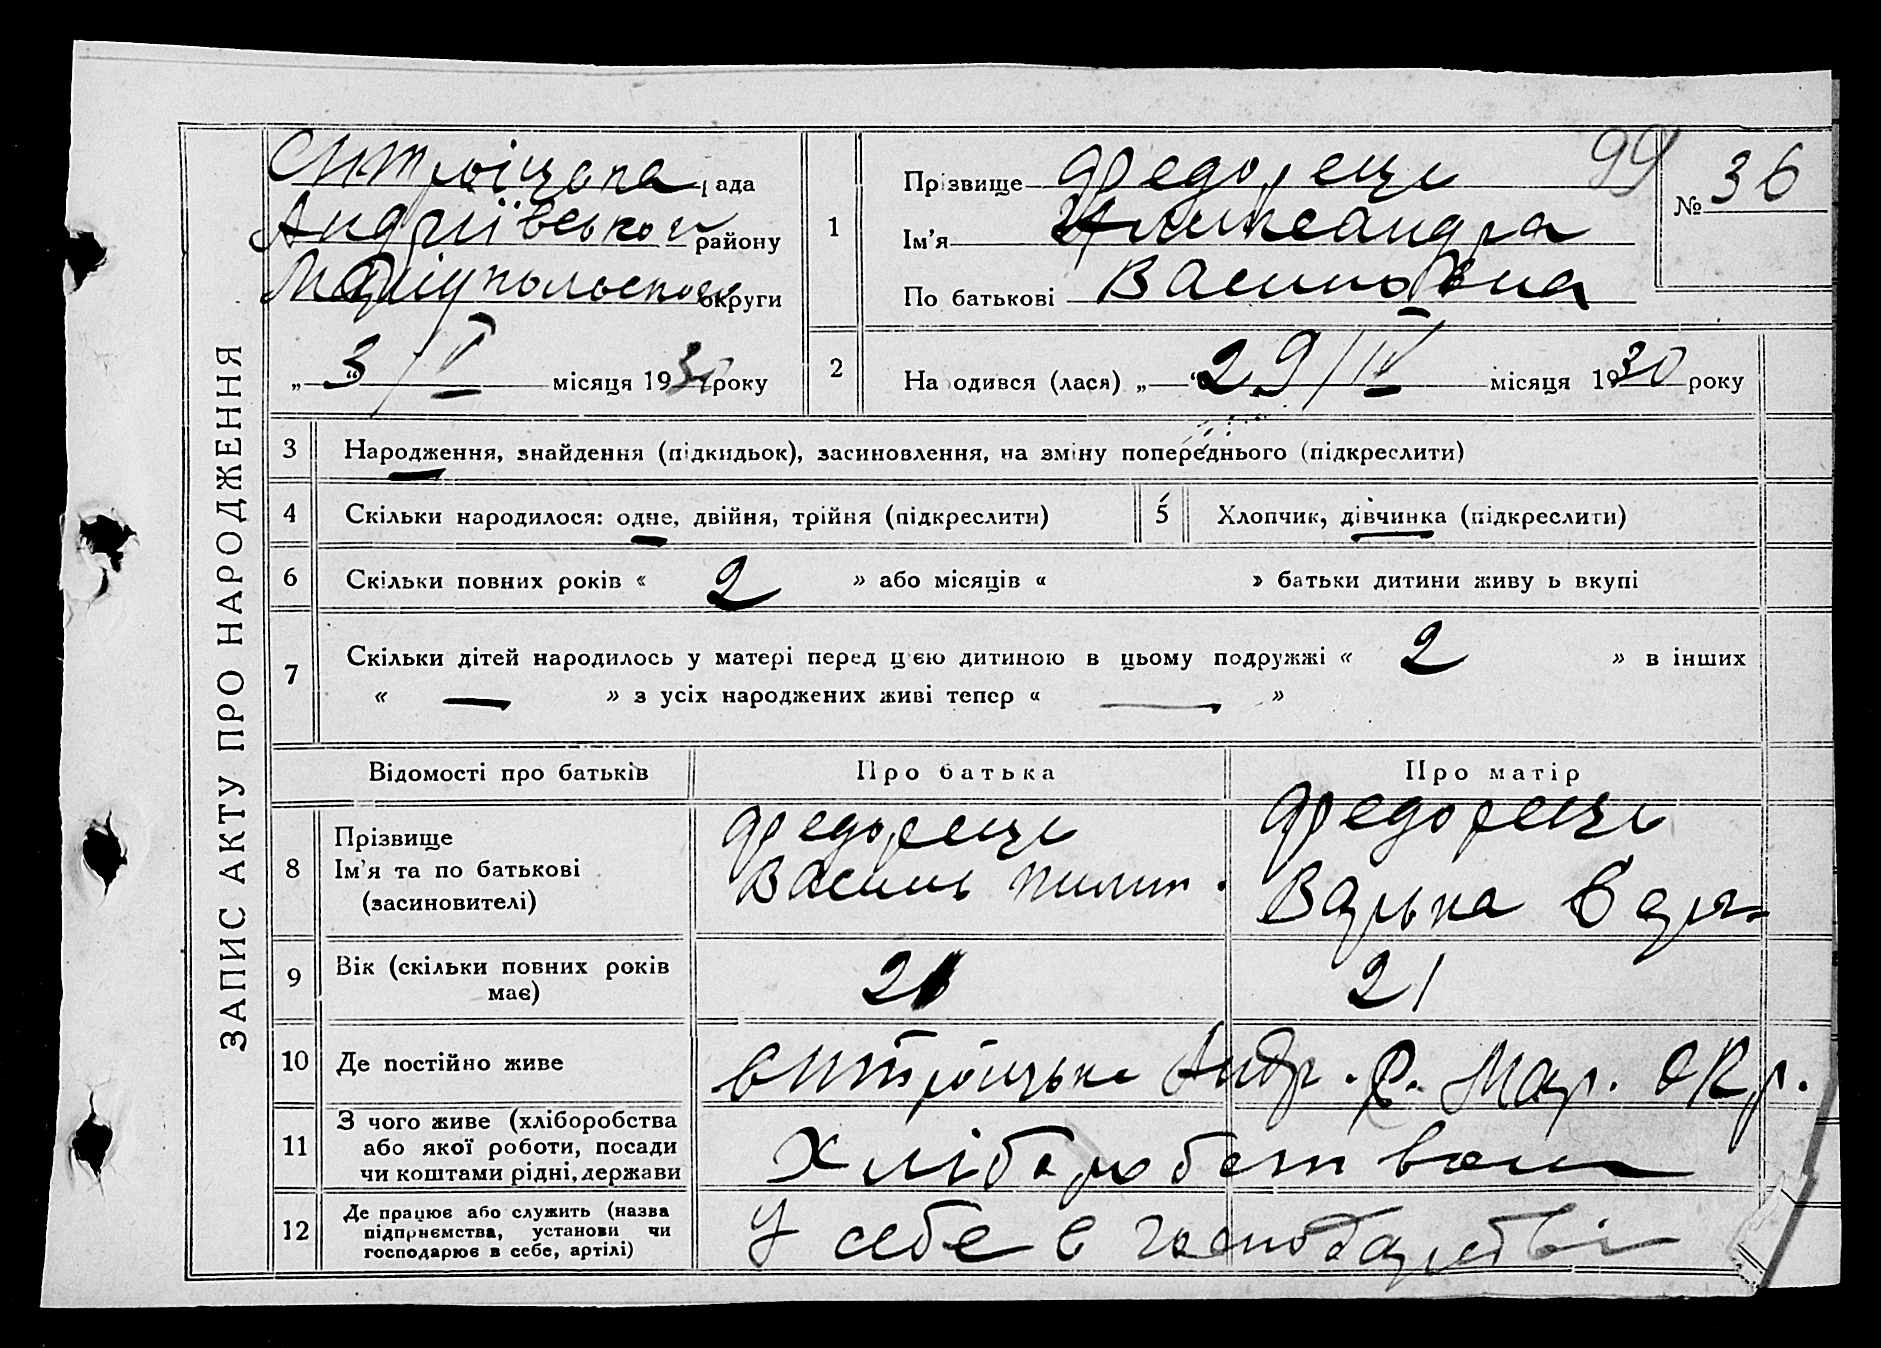 ЗАПИС АКТУ ПРО НАРОДЖЕННЯ
рада
Андріївського району
Маріупольської округи
„ 3 “ / V місяця 1930 року
1
Прізвище Федорець
Ім'я Александра
По батькові Васильовна
99
№ 36
2
На одився (лася) „ 29 / IV місяця 1930 року
3 Народження, знайдення (підкидьок), засиновлення, на зміну попереднього (підкреслити)
4 Скільки народилося: одне, двійня, трійня (підкреслити)
5 Хлопчик, дівчинка (підкреслити)
6 Скільки повних років « 2 » або місяців « » батьки дитини живу ь вкупі
7 Скільки дітей народилось у матері перед цією дитиною в цьому подружжі « 2 » в інших
« — » з усіх народжених живі тепер « — »
Відомості про батьків Про батька Про матір
8 Прізвище
Ім'я та по батькові
(засиновителі)
Федорець
Василь Пилип.
Федорець
Варька
9 Вік (скільки повних років
має)
21
10 Де постійно живе
Андр. Р. Мар. окр.
11 З чого живе (хліборобства
або якої роботи, посади
чи коштами рідні, держави
Хліборобством
12 Де працює або служить (назва
підприємства, установи чи
господарює в себе, артілі)
У себе в господарстві